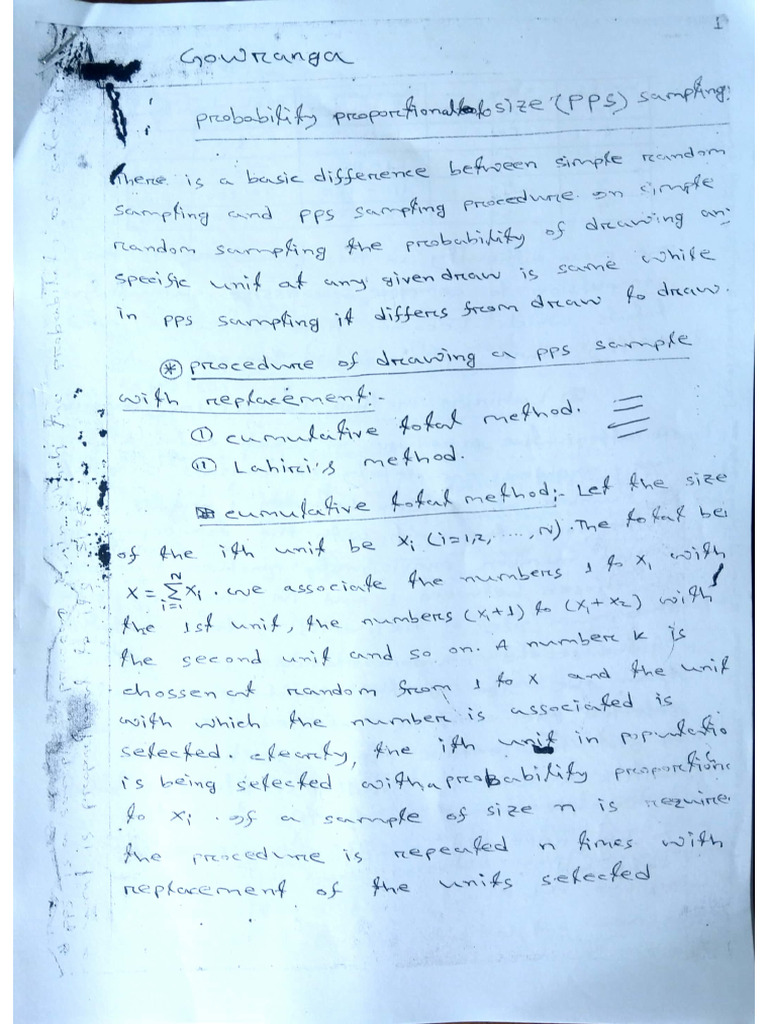 1
Gowranga
probability proportional to size (PPS) sampling:
There is a basic difference between simple random
sampling and PPS sampling procedure. on simple
random sampling the probability of drawing an
specific unit at any given draw is same while
in PPS sampling it differs from draw to draw.
* procedure of drawing a PPS sample
with replacement:-
(i) cumulative total method.
(ii) Lahiri's method.
cumulative total method:- Let the size
of the ith unit be Xi (i=1,2, ....., N). The total bei
X = Σ Xi . we associate the numbers 1 to X1 with
the 1st unit, the numbers (X1+1) to (X1+X2) with
the second unit and so on. A number K is
chossen at random from 1 to X and the unit
with which the number is associated is
selected. clearly, the ith unit in populatio
is being selected with a probability proportion
to Xi . of a sample of size n is require
the procedure is repeated n times with
replacement of the units selected